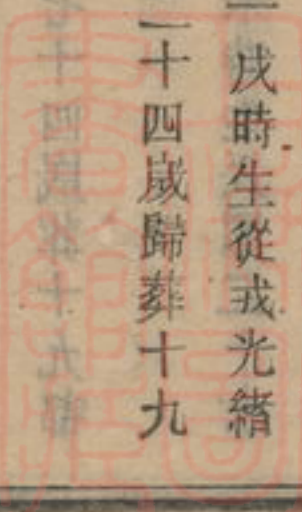 戌時生從戎光緒
十四歲歸葬十九